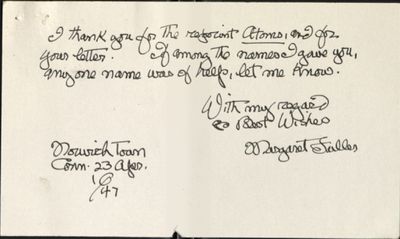 I thank you for the reprint Atoms, and for
your letter. If among the names I gave you,
any one name was of help, let me know.
With my regard
& Best Wishes
Margaret
Norwich Town
Conn. 23 Apr.
19
47